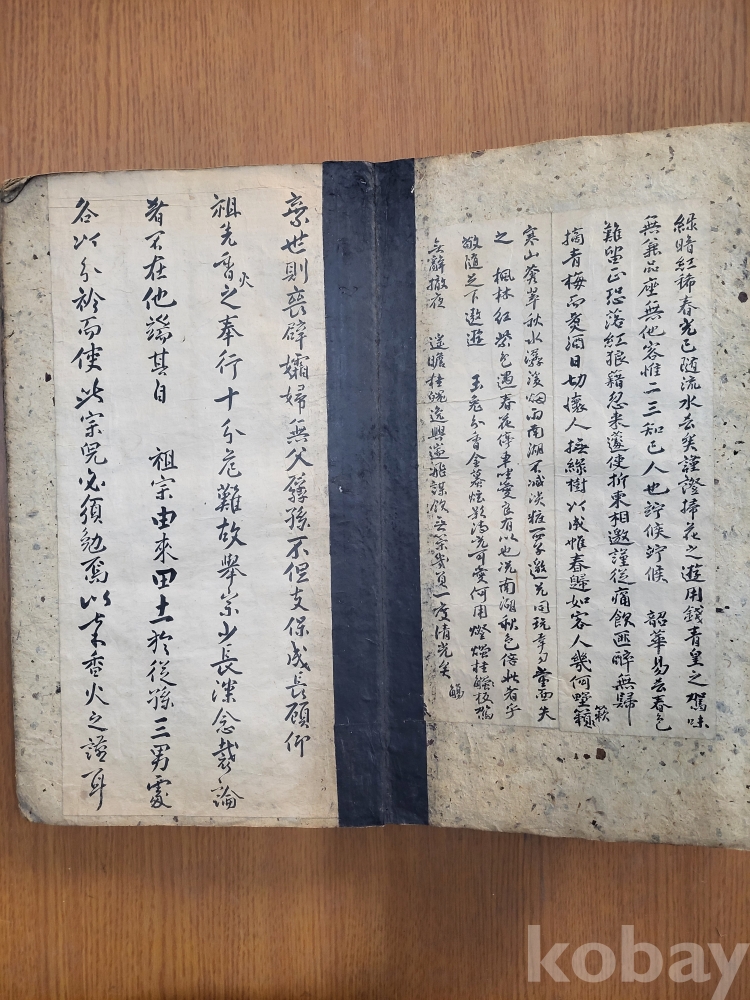 綠暗紅稀春光已隨流水去矣謹證掃花之遊用錢青皇之駕味
無兼品座無他客惟二三知已人也竚候竚候 韶華易去春色
難留正恐落紅狼籍忽来邃使折柬相邀謹從痛飲匪醉無歸
摘青梅而煑酒日切懷人撫綠樹以成帷春歸如客人幾何
寒山 翠秋水潺湲烟雨南湖不减淡粧 邀兄同玩幸勿當面失
之 楓林紅葉色過春花停車坐愛良有以也况南湖秋色倍此者乎
敬隨足下遨遊 玉兎分香金 炫影清光可愛何用燈 桂
無辭撤夜 遥瞻桂魄逸興遄飛謀飲 負一度清光矣
棄世則喪壁孀婦無父孽孫不但支保成長顧仰
祖先香火之奉行十分危難故舉宗少長深念裁論
者不在他端其自 祖宗由來田土於從孫三男處
各以分衿而使此宗兒必須勉焉以奉香火之謹耳
kobay